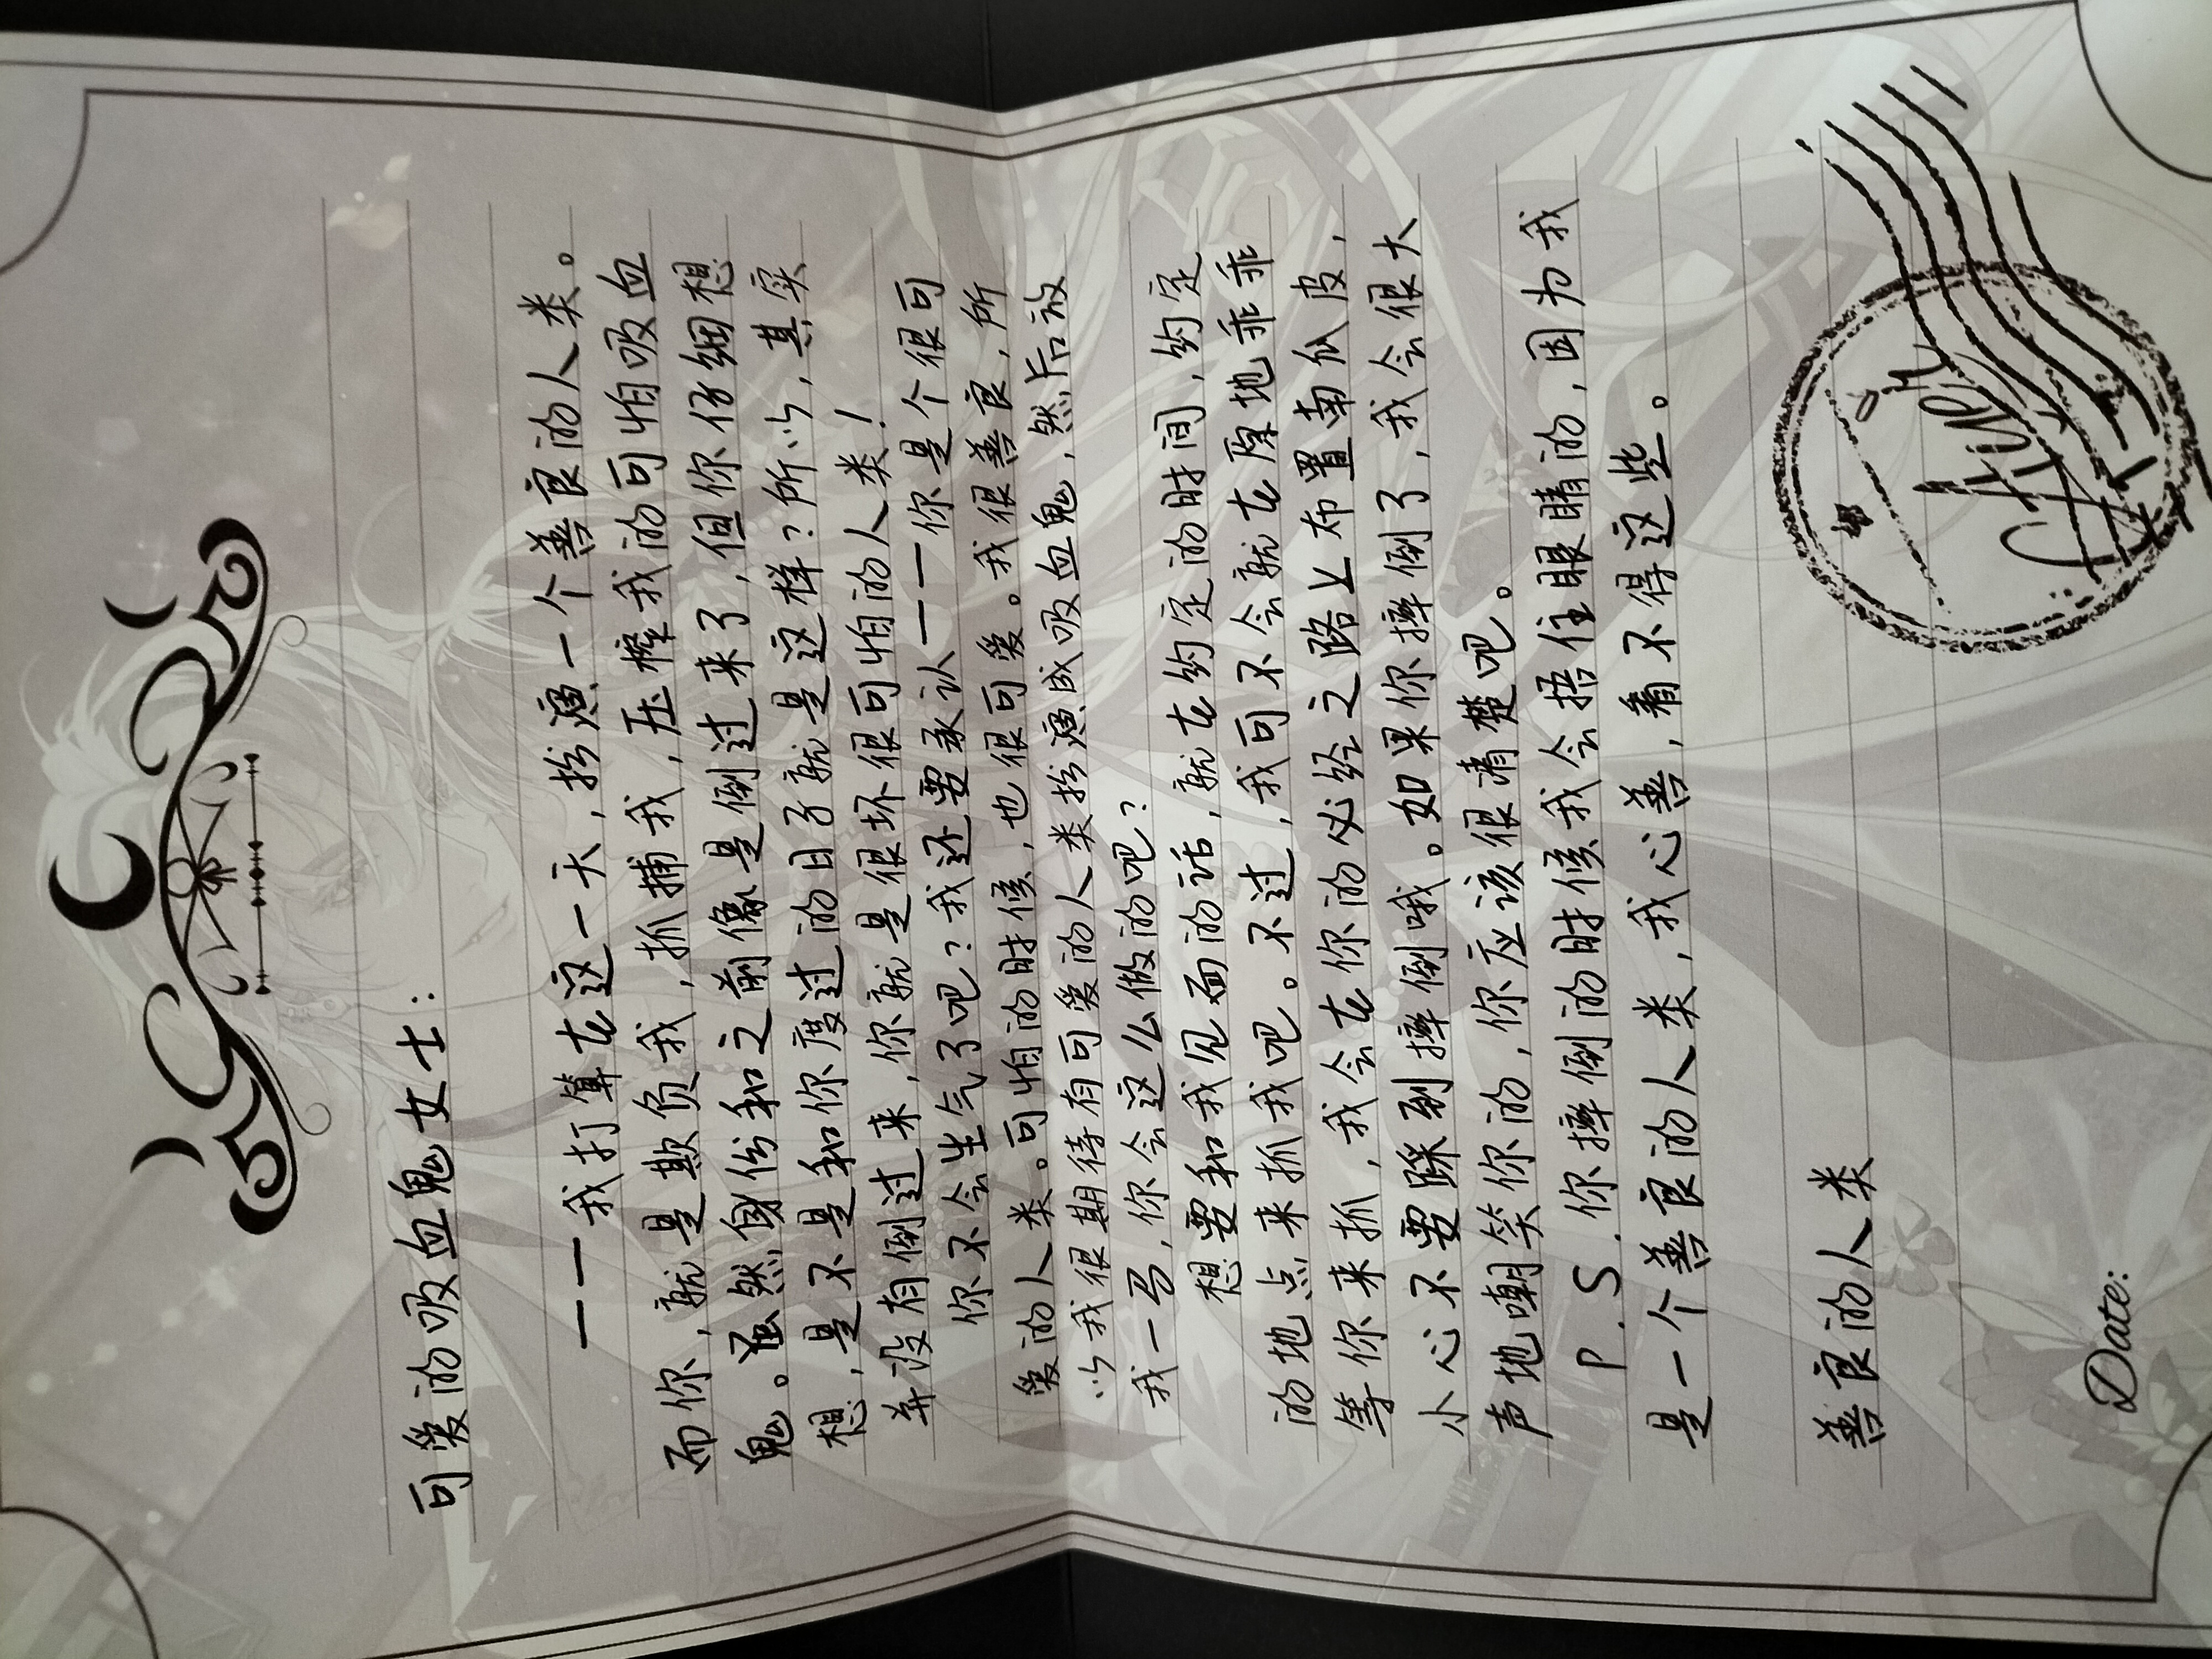 可爱的吸血鬼女士：
——我打算在这一天，扮演一个善良的人类。
而你，就是欺负我，抓捕我，压榨我的可怕吸血
鬼。虽然身份和之前像是倒过来了，但你仔细想
想，是不是和你度过的日子就是这样？所以，其实
并没有倒过来，你就是很坏很可怕的人类！
你不会生气了吧？我还要承认——你是个很可
爱的人类。可怕的时候，也很可爱。我很善良，所
以我很期待有可爱的人类扮演成吸血鬼，然后放
我一马，你会这么做的吧？
想要和我见面的话，就在约定的时间，约定
的地点来抓我吧。不过，我可不会就在原地乖乖
等你来抓，我会在你的必经之路上布置南瓜皮，
小心不要踩到摔倒哦。如果你摔倒了，我会很大
声地嘲笑你的，你应该很清楚吧。
P.S.你摔倒的时候我会捂住眼睛的，因为我
是一个善良的人类，我心善，看不得这些。
善良的人类
Date: